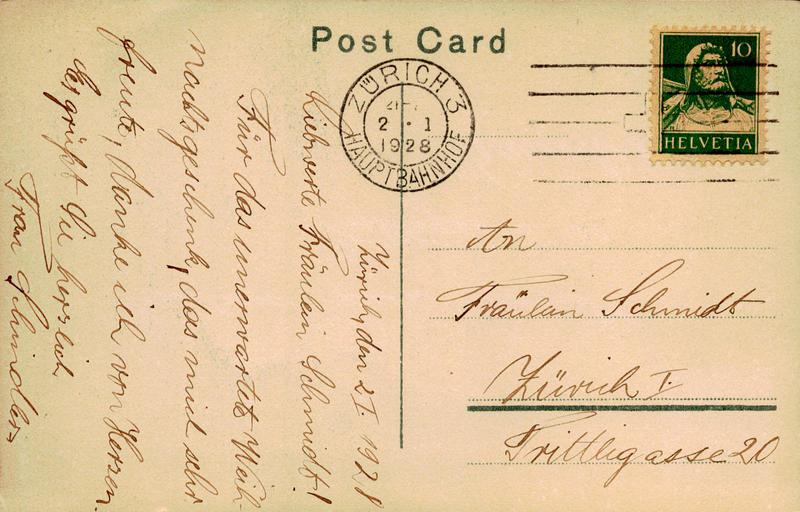 Post Card
ZÜRICH 3
2 · 1
1928
HAUPTBAHNHOF
10
HELVETIA
Zürich, den 2 I. 1928
Liebwerte Fräulein Schmidt!
Für das unerwartete Weih-
nachtsgeschenk, das mich sehr
freute, danke ich von Herzen.
Es grüßt Sie herzlich
Frau
An
Fräulein Schmidt
Zürich I.
Trittligasse 20